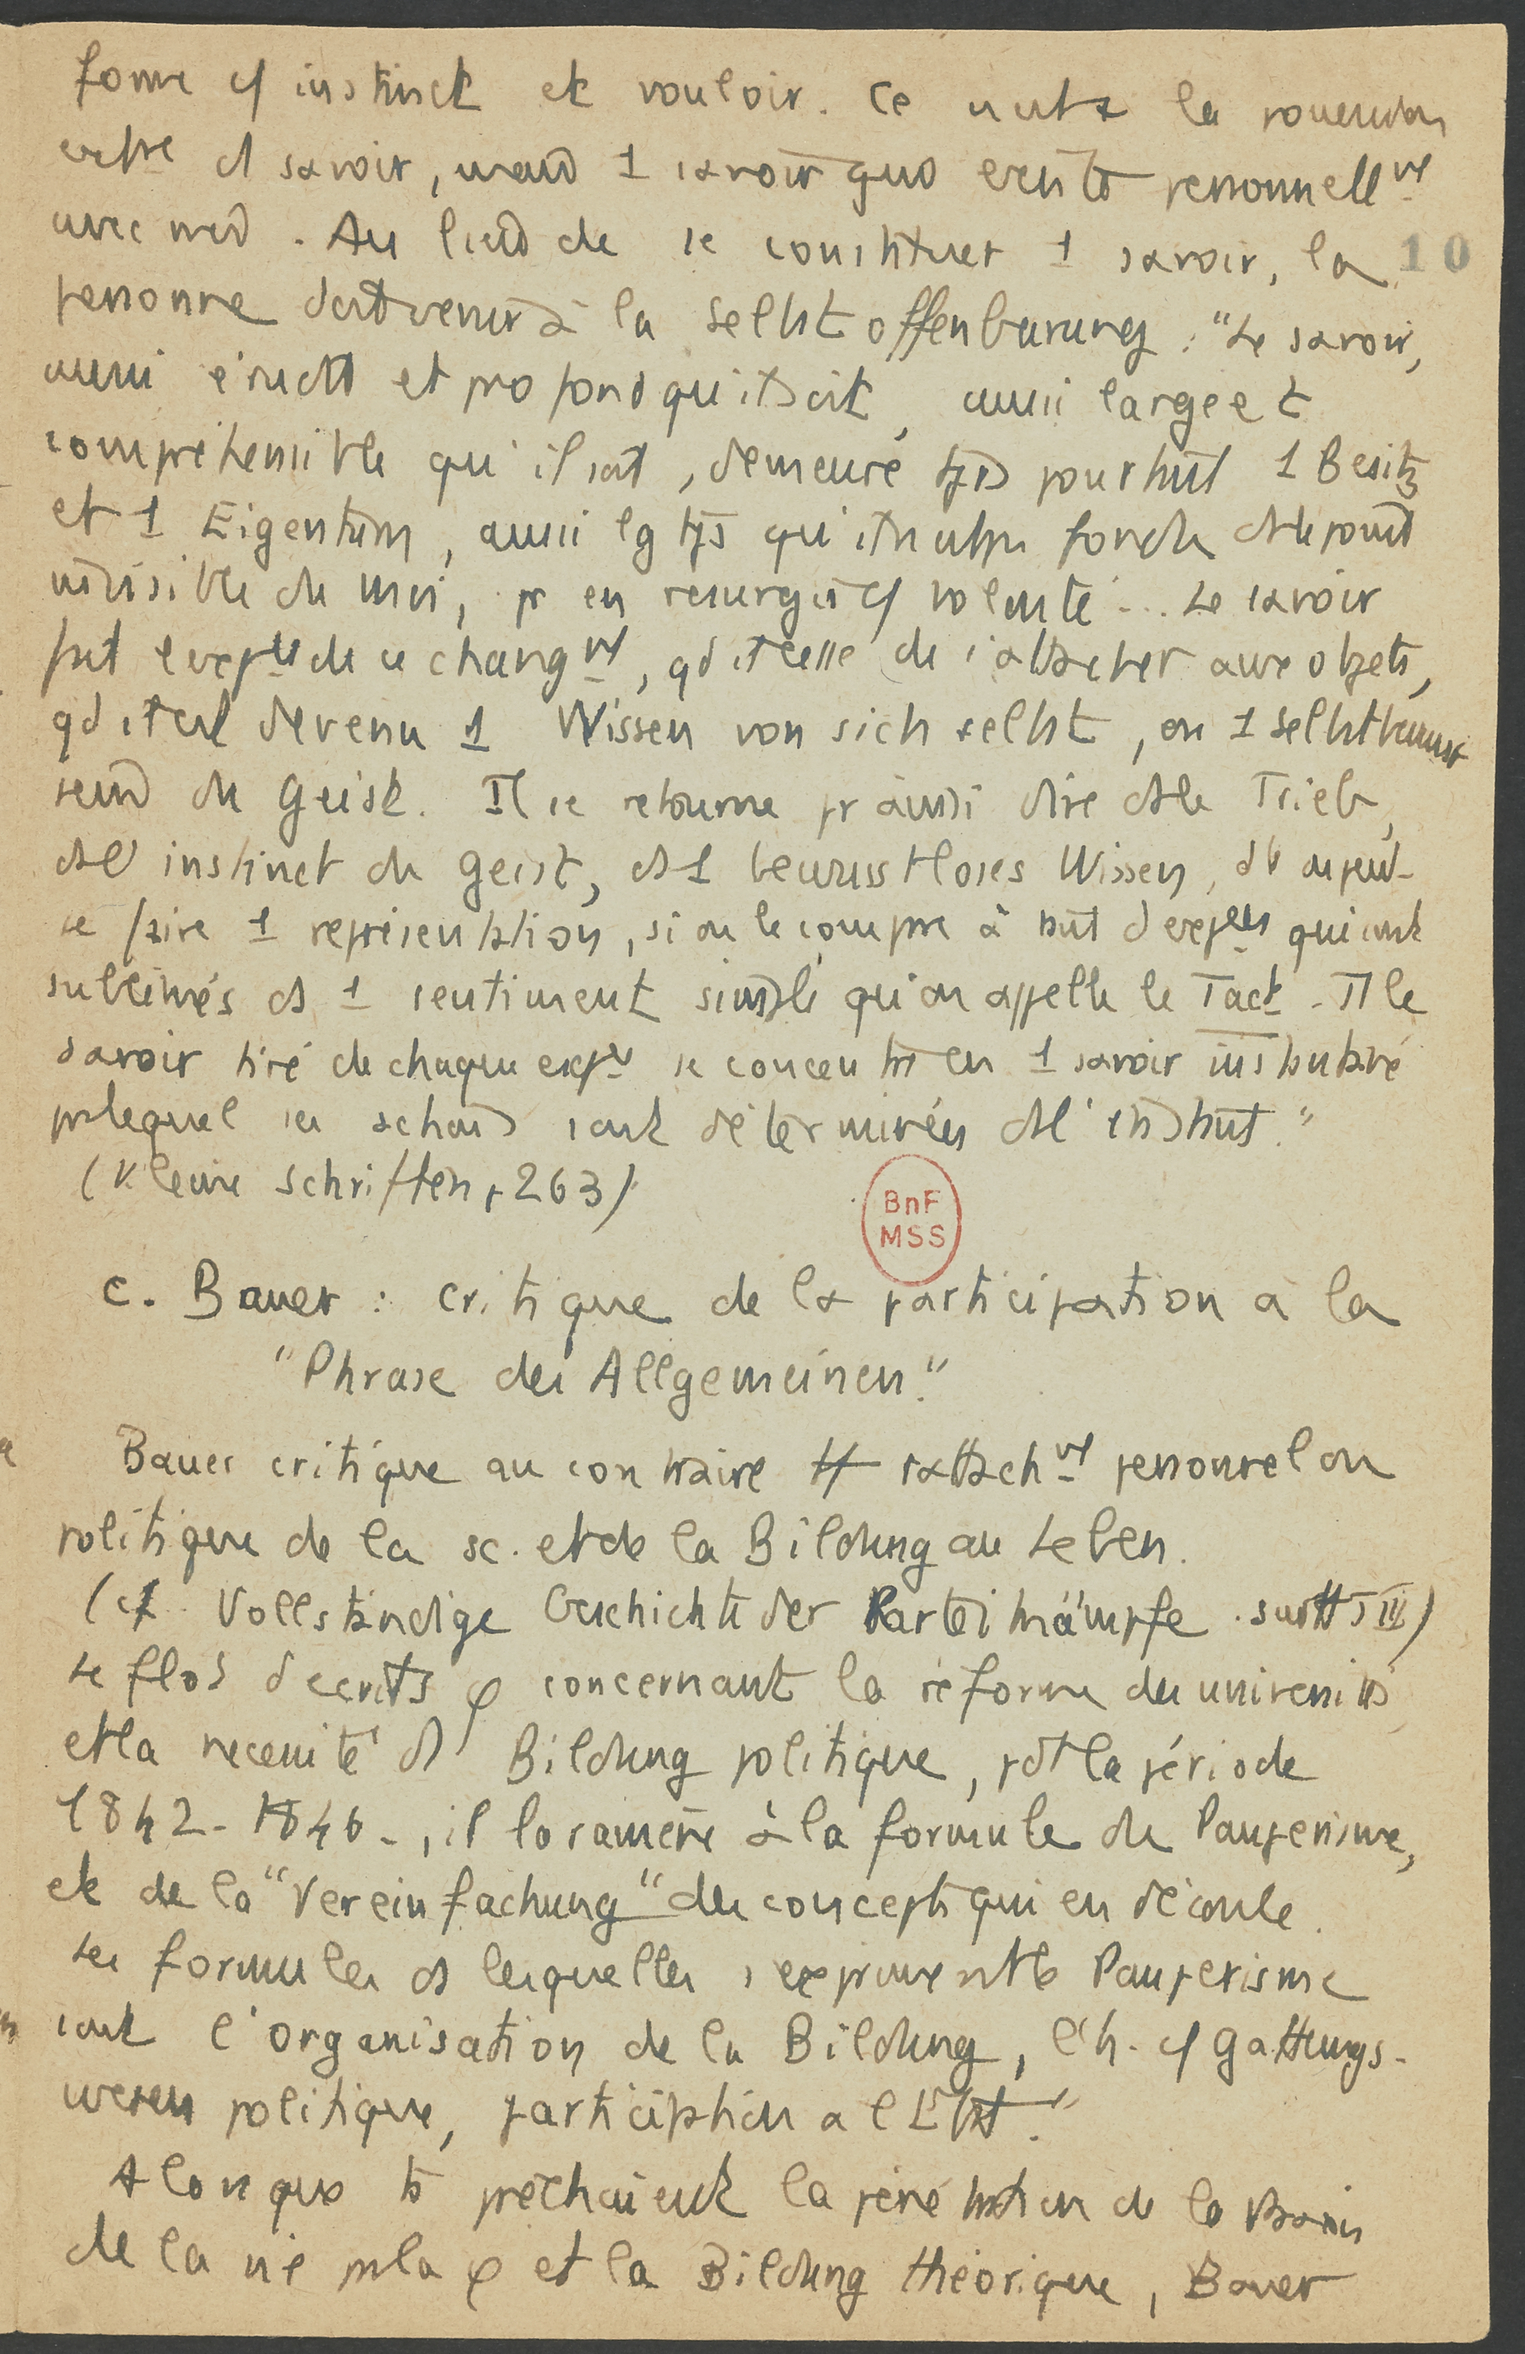 forme cf instinct et vouloir. Ce n'est la
être ds savoir, mais 1 savoir qui existe personnellmt
avec moi. Au lieu de se constituer 1 savoir, la 10
personne doit venir à la Selbstoffenbarung : "Le savoir,
aussi érudit et profond qu'il soit, aussi large et
compréhensible qu'il soit, demeure tjs pourtant 1 Besitz
et 1 Eigentum, aussi lg tps qu'il n'est pas fondu ds le point
invisible du moi, pr en resurgir cf volonté... Le savoir
fait l'expce de ce changmt, qd il cesse de s'attacher aux objets,
qd il est devenu 1 Wissen von sich selbst, ou 1 Selbstbewusst
sein du Geist. Il se retourne pr ainsi dire ds le Trieb,
ds l'instinct du Geist, ds 1 bewusstloses Wissen, dt on peut
se faire 1 représentation, si on le compare à tant d'expces qui sont
sublimés ds 1 sentiment simple qu'on appelle le Tact. Tt le
savoir tiré de chaque expce se concentre en 1 savoir instantané
par lequel ses actions sont déterminées ds l'instant."
(Kleine Schriften p 263)
BnF
MSS
c. Bauer : critique de la participation à la
"Phrase des Allgemeinen."
Bauer critique au contraire tt rattachmt personnel ou
politique de la sc. et de la Bildung au Leben.
(cf Vollständige Geschichte der Parteikämpfe. surtt T III)
Le flot d'écrits φ concernant la réforme des universités
et la nécessité ds Bildung politique, pdt la période
1842-1846-, il les ramène à la formule du Pauperisme,
et de la "Vereinfachung" des concepts qui en découle.
Les formules ds lesquelles s'expriment le Pauperisme
sont l'organisation de la Bildung, l'h. cf Gattungs-
wesen politique, participation à l'Etat."
Alors que ts prêchaient la pénétration de la Praxis
de la vie par la φ et la Bildung théorique, Bauer